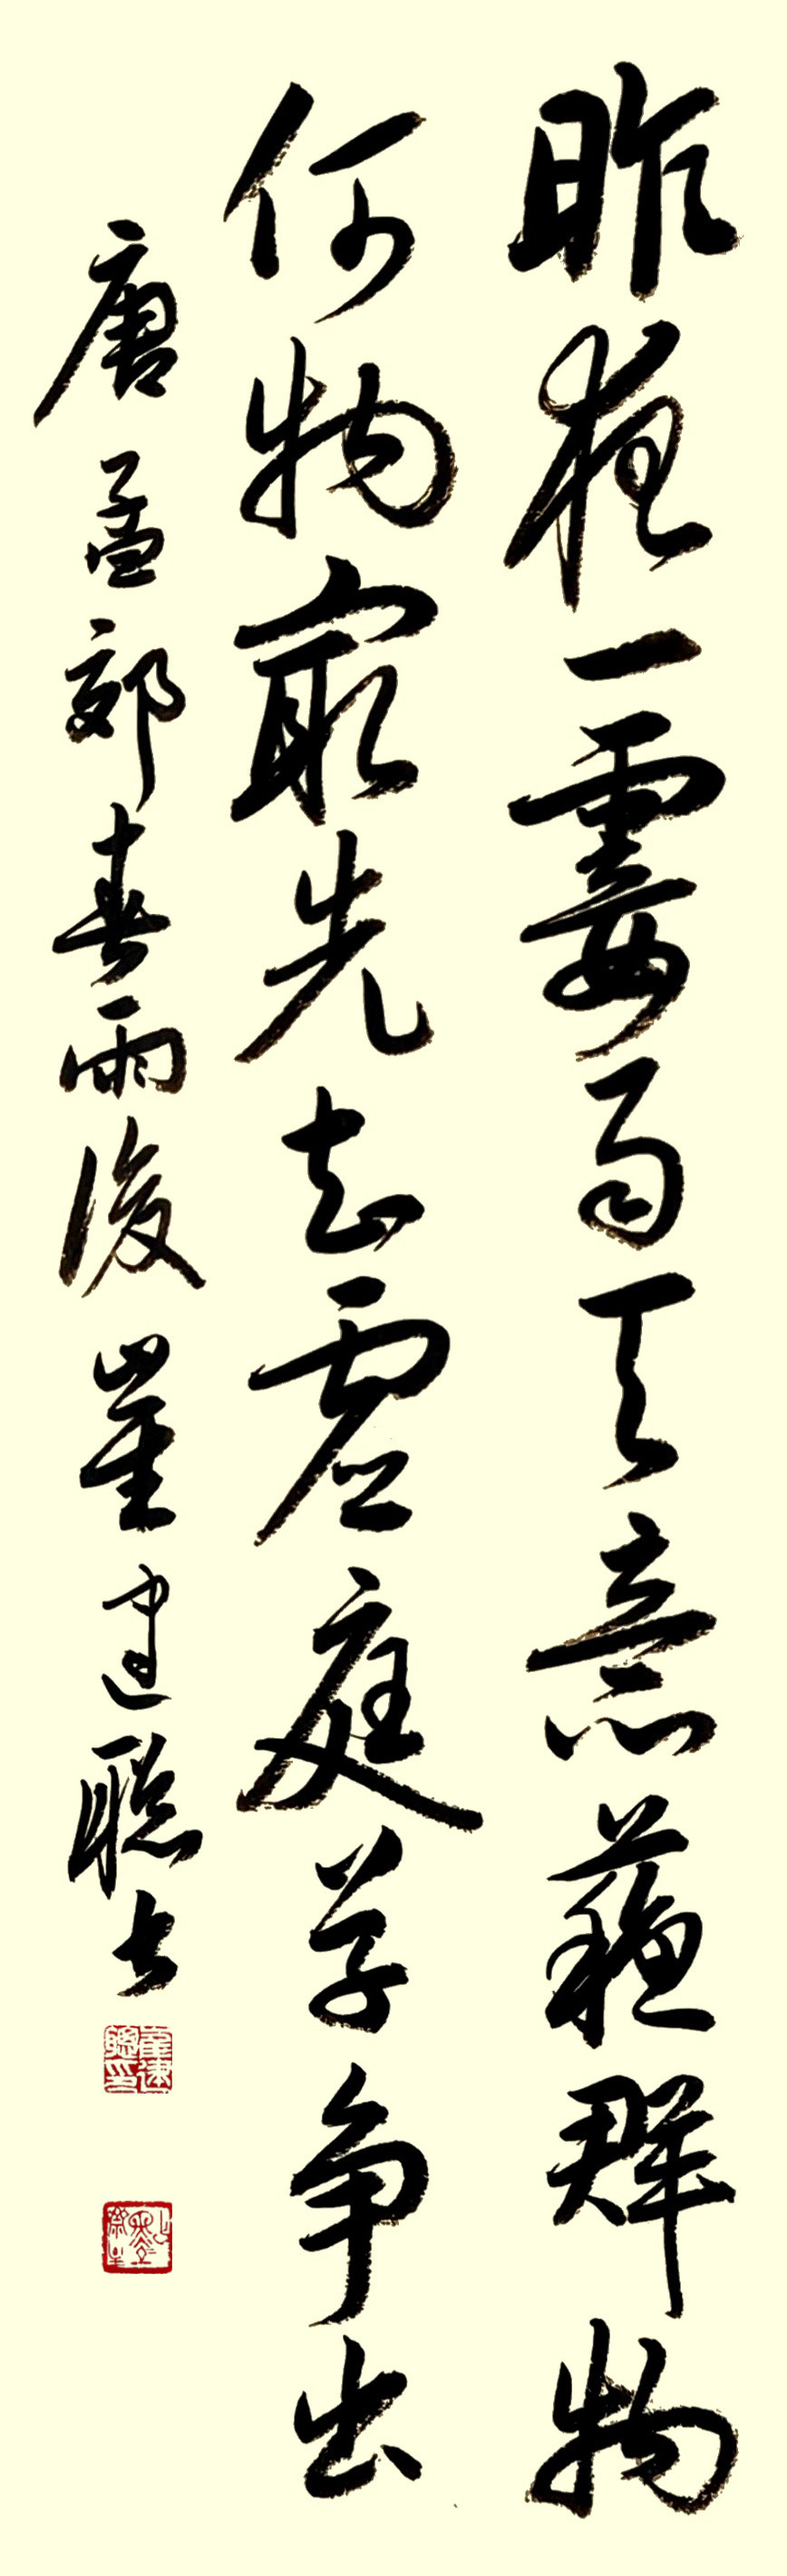 昨夜一霎雨天意蘇群物
何物最先知虛庭草爭出
唐孟郊春雨後 崔建聰書
崔建聰印